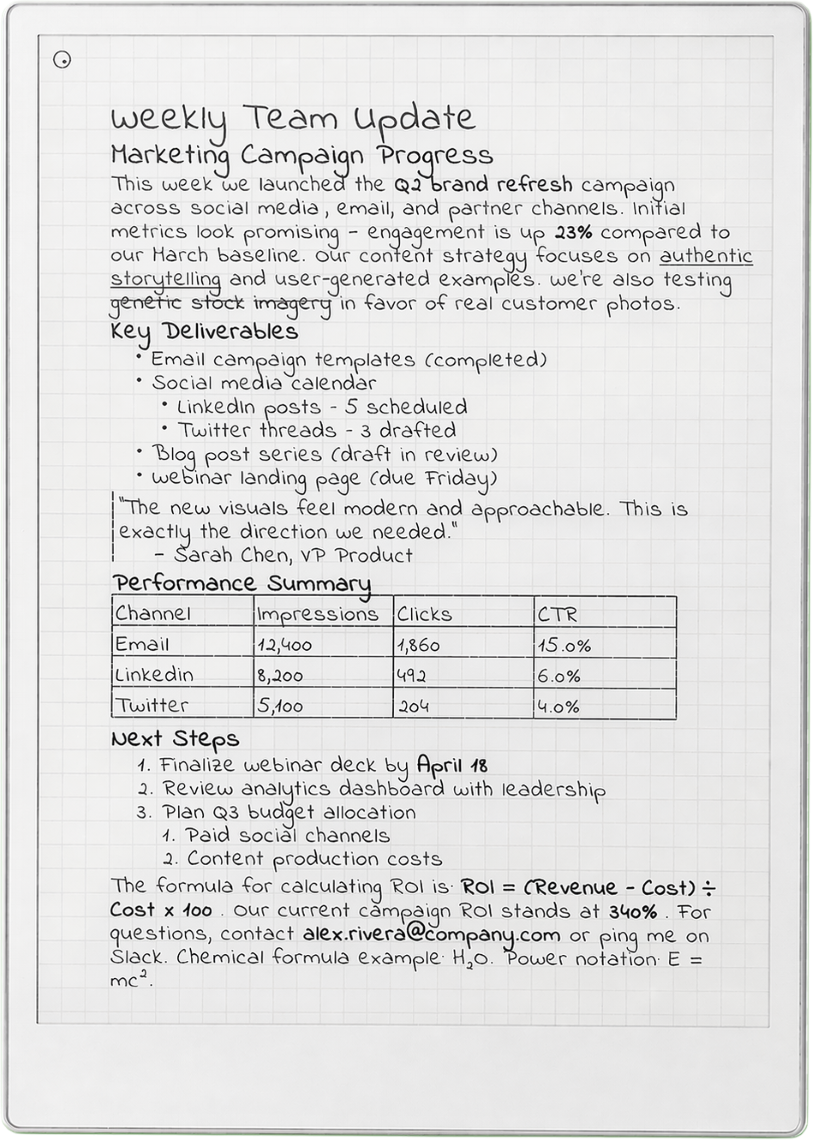 Weekly Team Update
Marketing Campaign Progress
This week we launched the Q2 brand refresh campaign
across social media, email, and partner channels. Initial
metrics look promising - engagement is up 23% compared to
our March baseline. Our content strategy focuses on authentic
storytelling and user-generated examples. We're also testing
genetic stock imagery in favor of real customer photos.
Key Deliverables
• Email campaign templates (completed)
• Social media calendar
• LinkedIn posts - 5 scheduled
• Twitter threads - 3 drafted
• Blog post series (draft in review)
• Webinar landing page (due Friday)
"The new visuals feel modern and approachable. This is
exactly the direction we needed."
- Sarah Chen, VP Product
Performance Summary
Channel Impressions Clicks CTR
Email 12,400 1,860 15.0%
Linkedin 8,200 492 6.0%
Twitter 5,100 204 4.0%
Next Steps
1. Finalize webinar deck by April 18
2. Review analytics dashboard with leadership
3. Plan Q3 budget allocation
1. Paid social channels
2. Content production costs
The formula for calculating ROI is: ROI = (Revenue - Cost) ÷
Cost x 100 . Our current campaign ROI stands at 340% . For
questions, contact alex.rivera@company.com or ping me on
Slack. Chemical formula example: H₂O. Power notation: E =
mc².